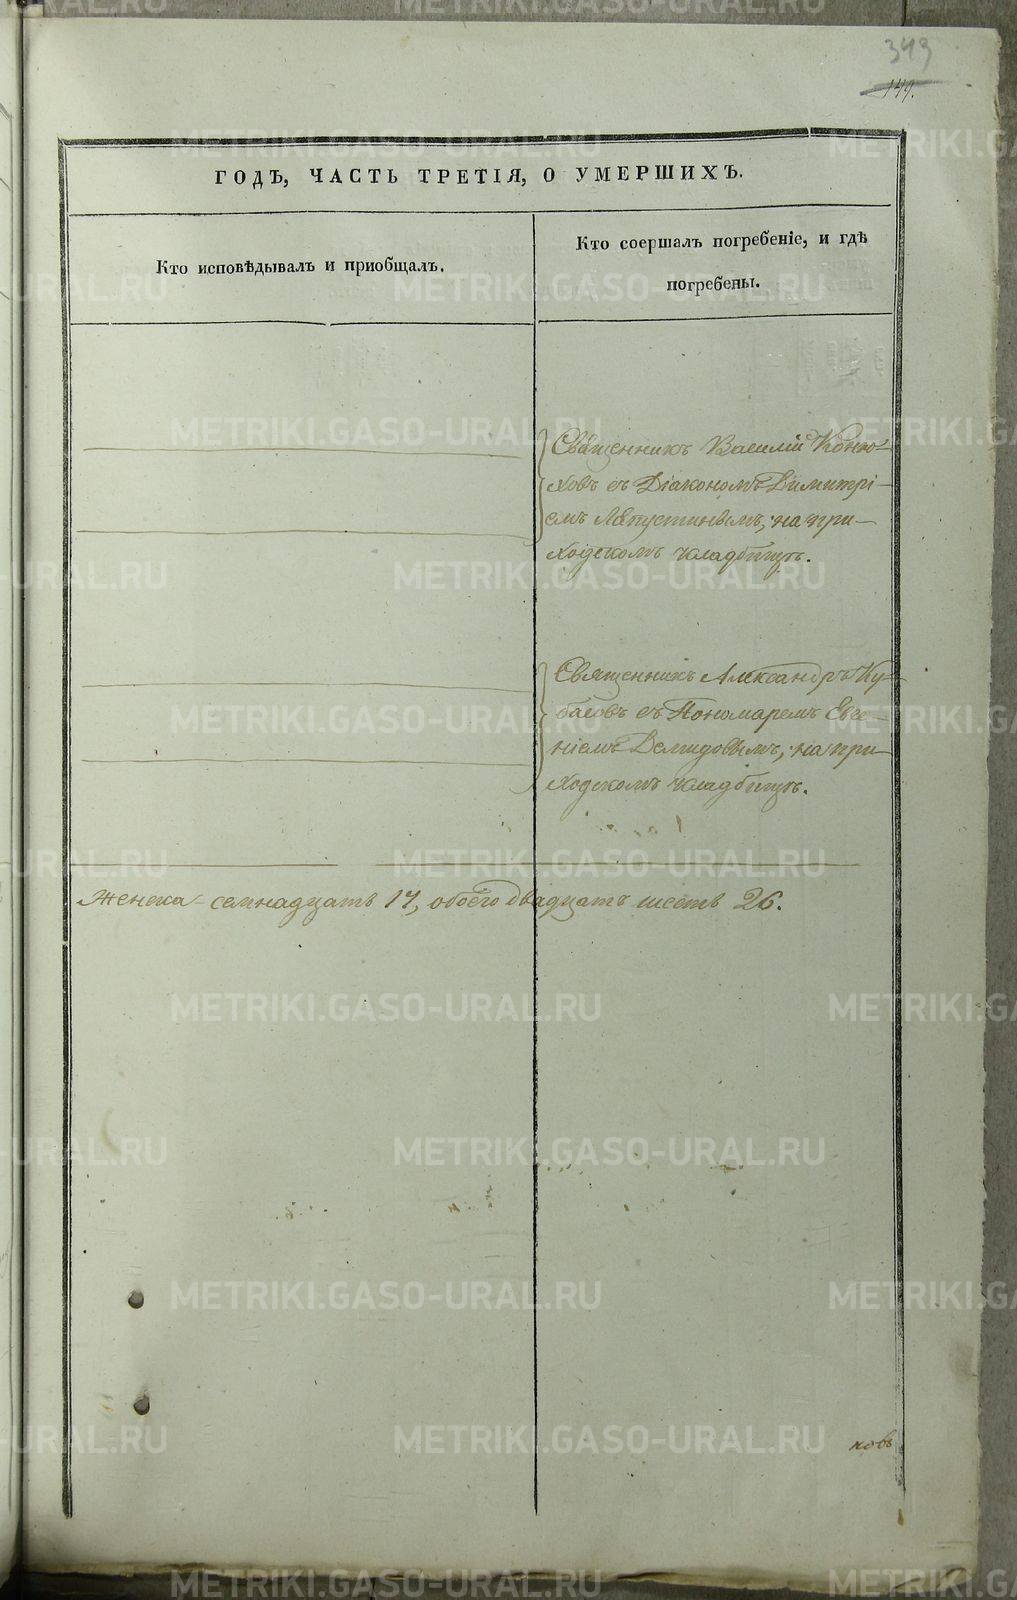 343
149.
ГОДЪ, ЧАСТЬ ТРЕТІЯ, О УМЕРШИХЪ.
Кто исповѣдывалъ и пріобщалъ.
Кто соершалъ погребеніе, и гдѣ
погребены.
Священникъ Василій Коню-
ховъ съ Діакономъ Димитрі-
емъ Лапустинымъ, на при-
ходскомъ кладбищѣ.
Священникъ Александръ Ку-
басовъ съ Пономаремъ Евге-
ніемъ Демидовымъ, на при-
ходскомъ кладбищѣ.
женска семнадцать 17, обоего двадцать шесть 26.
ковъ
METRIKI.GASO-URAL.RU